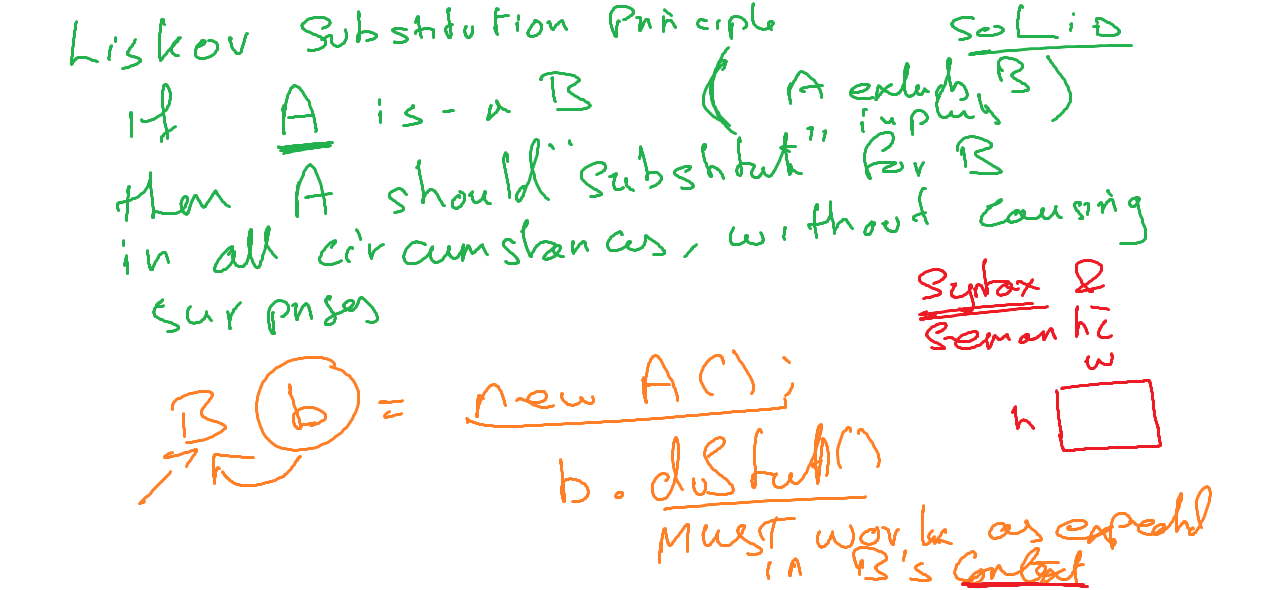 Liskov Substitution Principle SOLID
If A is-a B (A extends B)
implements
then A should "substitute" for B
in all circumstances, without causing
surprises
Syntax &
Semantic
w
h
B b = new A();
b.doStuff()
MUST work as expected
in B's Context